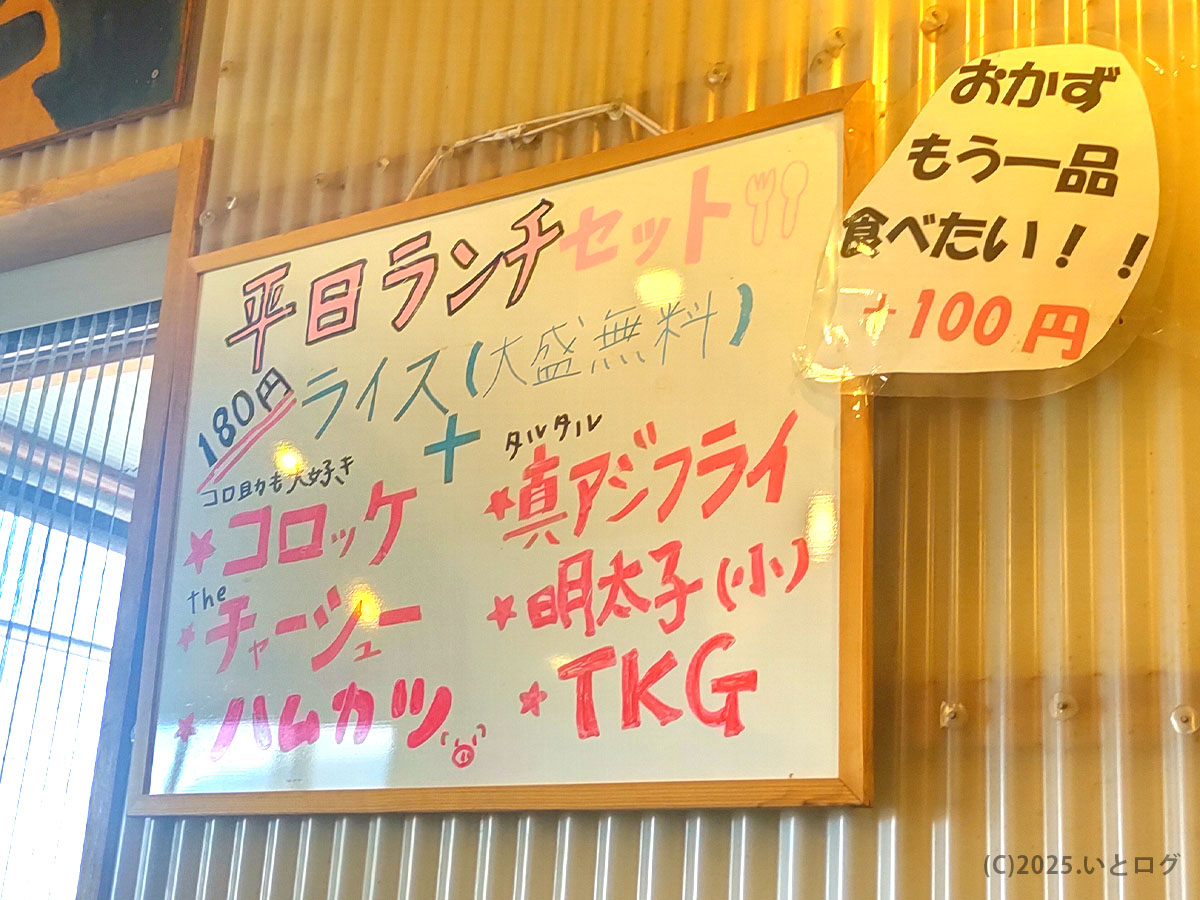 平日ランチセット
180円 ライス(大盛無料)
+
コロ助も大好き
★コロッケ
the
★チャーシュー
★ハムカツ
タルタル
★真アジフライ
★明太子(小)
★TKG
おかず
もう一品
食べたい！！
+100円
(C)2025.いとログ